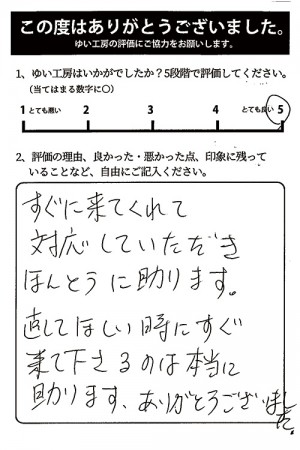 この度はありがとうございました。
ゆい工房の評価にご協力をお願いします。
1、ゆい工房はいかがでしたか？5段階で評価してください。
（当てはまる数字に〇）
1 とても悪い 2 3 4 とても良い 5
2、評価の理由、良かった・悪かった点、印象に残って
いることなど、自由にご記入ください。
すぐに来てくれて
対応していただき
ほんとうに助ります。
直してほしい時にすぐ
来て下さるのは本当に
助ります、ありがとうございました。